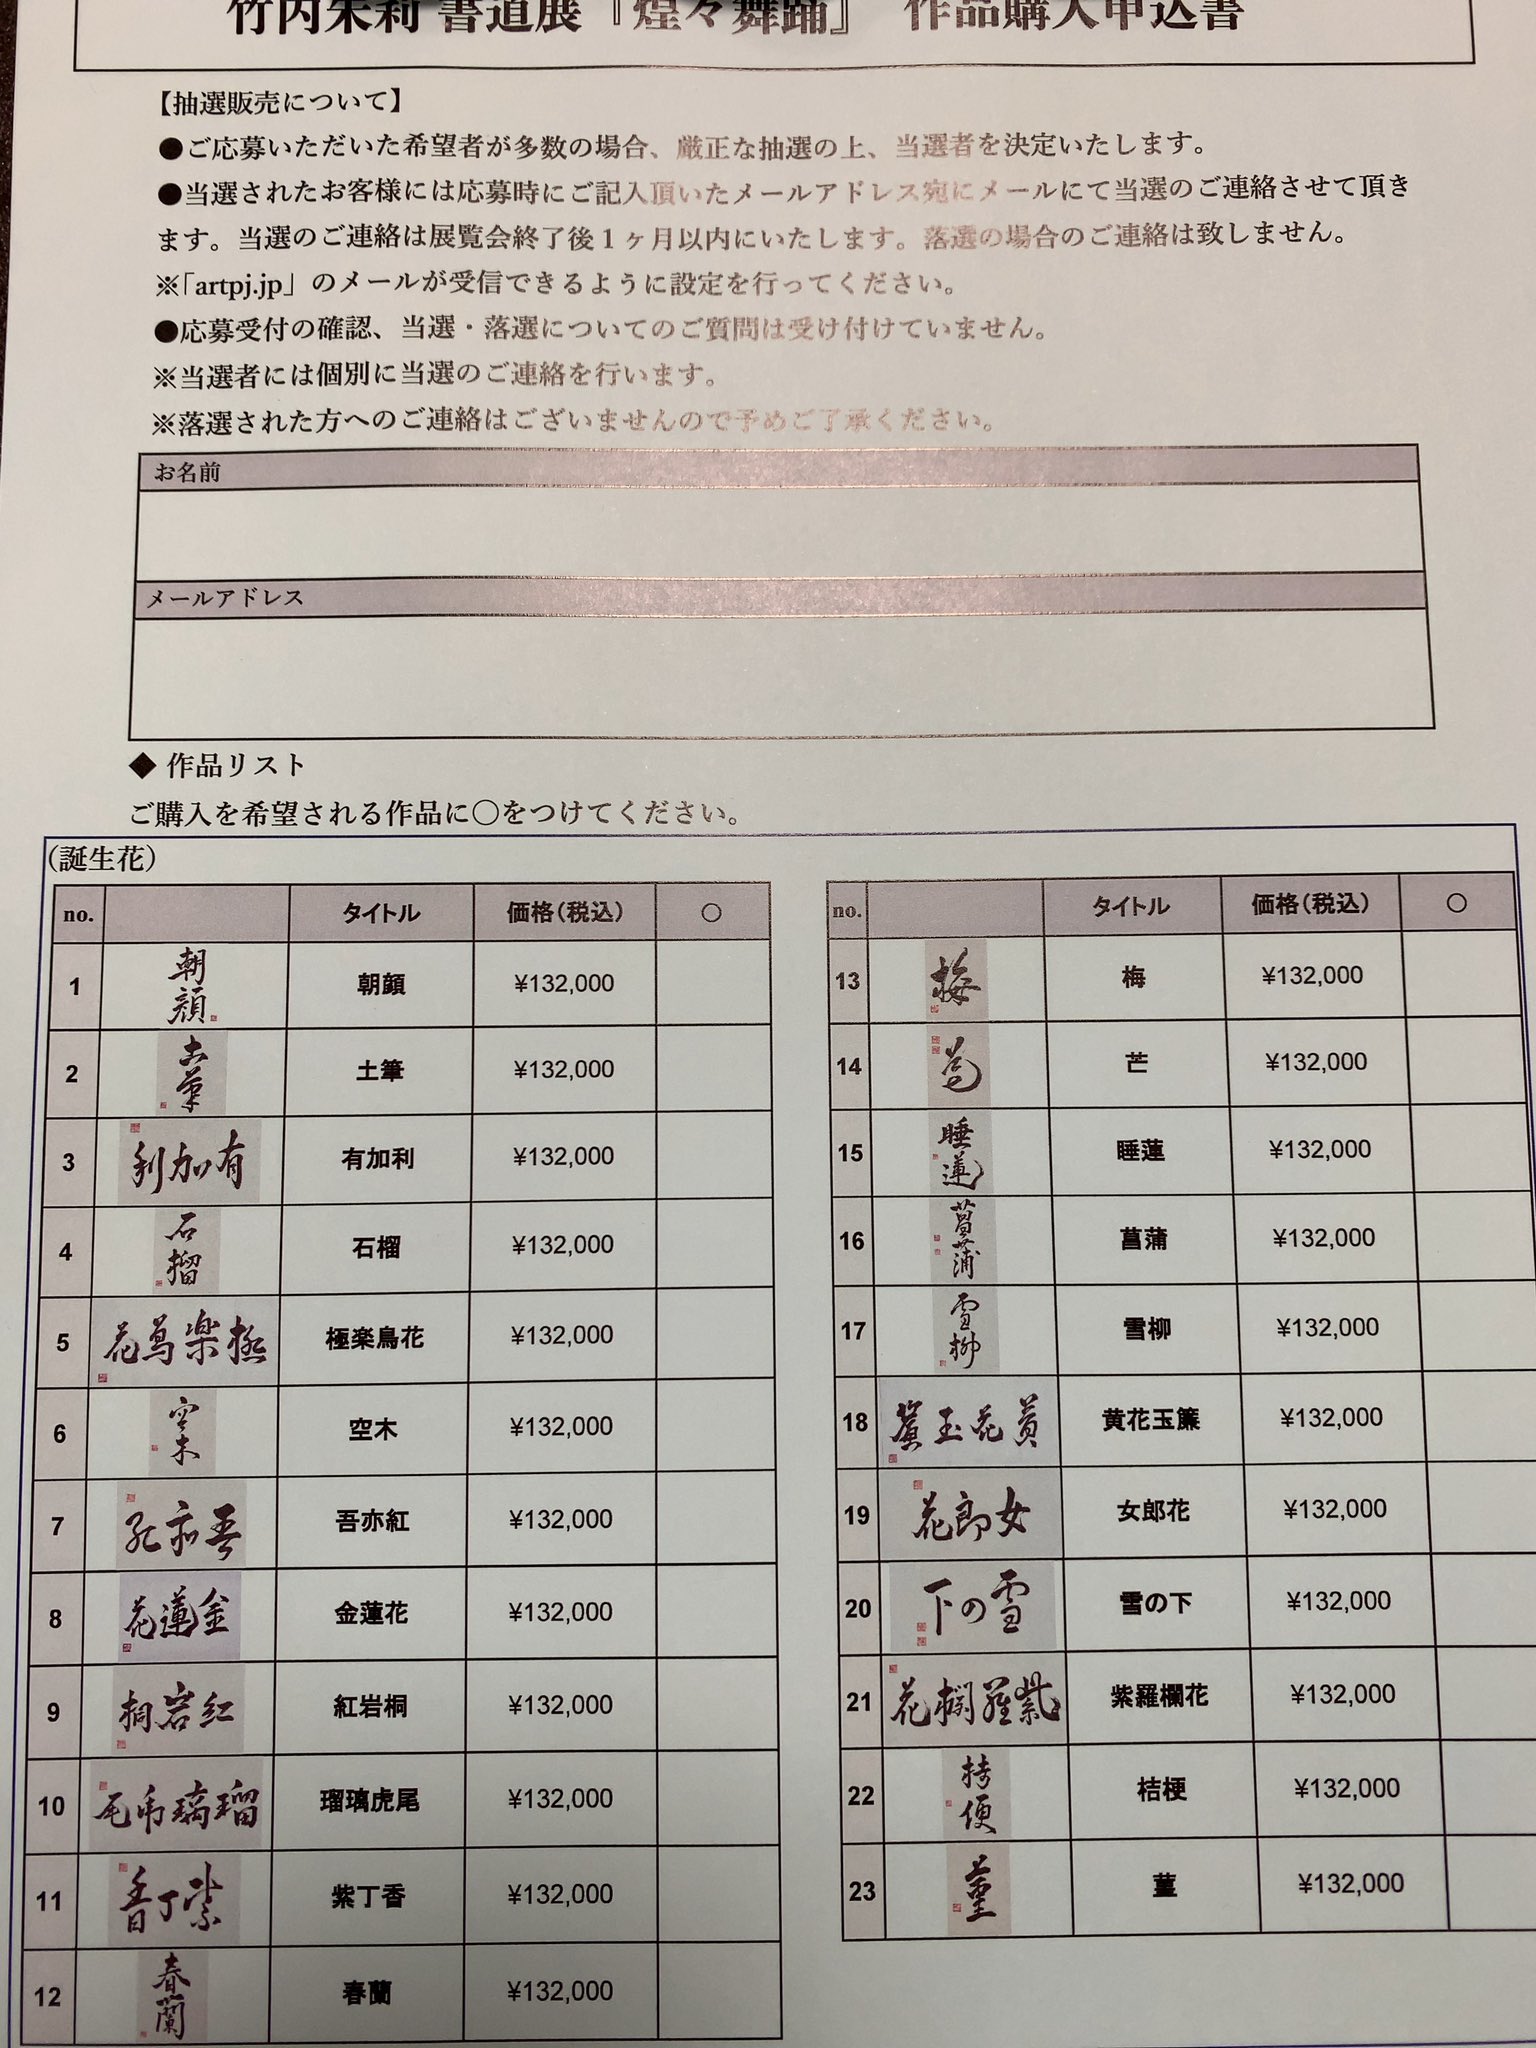 竹内朱莉 書道展『煌々舞踊』 作品購入申込書
【抽選販売について】
●ご応募いただいた希望者が多数の場合、厳正な抽選の上、当選者を決定いたします。
●当選されたお客様には応募時にご記入頂いたメールアドレス宛にメールにて当選のご連絡させて頂き
ます。当選のご連絡は展覧会終了後1ヶ月以内にいたします。落選の場合のご連絡は致しません。
※「artpj.jp」のメールが受信できるように設定を行ってください。
●応募受付の確認、当選・落選についてのご質問は受け付けていません。
※当選者には個別に当選のご連絡を行います。
※落選された方へのご連絡はございませんので予めご了承ください。
お名前
メールアドレス
◆ 作品リスト
ご購入を希望される作品に〇をつけてください。
(誕生花)
no. タイトル 価格(税込) 〇
1 朝顔 朝顔 ¥132,000
2 土筆 土筆 ¥132,000
3 利加有 有加利 ¥132,000
4 石榴 石榴 ¥132,000
5 花鳥楽極 極楽鳥花 ¥132,000
6 空木 空木 ¥132,000
7 紅亦吾 吾亦紅 ¥132,000
8 花蓮金 金蓮花 ¥132,000
9 桐岩紅 紅岩桐 ¥132,000
10 尾虎璃瑠 瑠璃虎尾 ¥132,000
11 香丁紫 紫丁香 ¥132,000
12 春蘭 春蘭 ¥132,000
no. タイトル 価格(税込) 〇
13 梅 梅 ¥132,000
14 芒 ¥132,000
15 睡蓮 睡蓮 ¥132,000
16 菖蒲 菖蒲 ¥132,000
17 雪柳 雪柳 ¥132,000
18 簾玉花黄 黄花玉簾 ¥132,000
19 花郎女 女郎花 ¥132,000
20 下の雪 雪の下 ¥132,000
21 花欄羅紫 紫羅欄花 ¥132,000
22 桔梗 桔梗 ¥132,000
23 菫 菫 ¥132,000